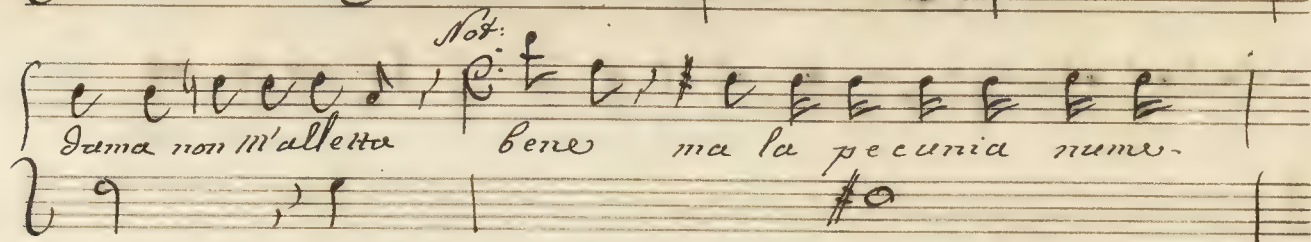 Not:
dama non m'alletta bene ma la pecunia nume-